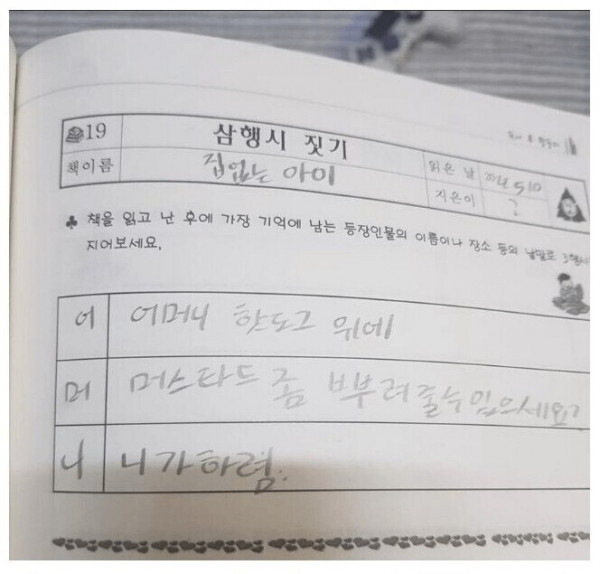 19 삼행시 짓기
책이름 집없는 아이 읽은 날 5/10
지은이 ?
♣ 책을 읽고 난 후에 가장 기억에 남는 등장인물의 이름이나 장소 등의 낱말로 3행시
지어보세요.
어 어머니 핫도그 위에
머 머스타드 좀 ㅂ부려줄수 있으세요?
니 니가하렴.